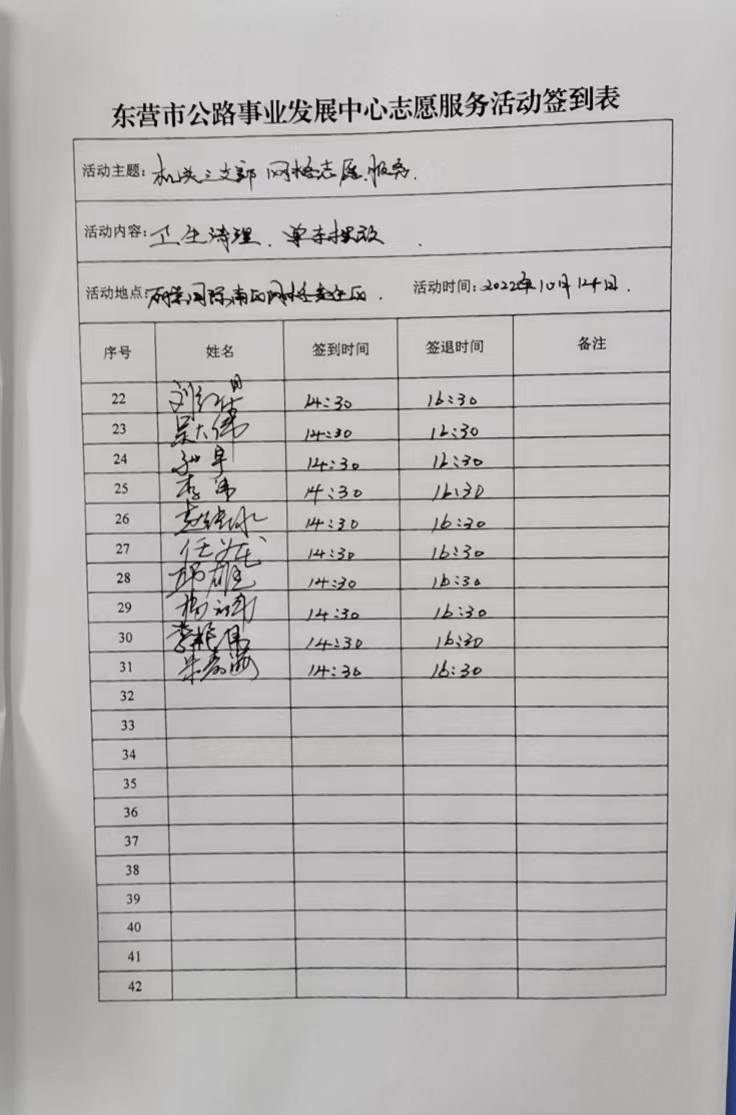 东营市公路事业发展中心志愿服务活动签到表
活动主题: 机关三支部 网格志愿服务.
活动内容: 卫生清理、单车摆放.
活动地点: 国际南区网格责任区. 活动时间: 2022年10月14日.
序号 姓名 签到时间 签退时间 备注
22 14:30 16:30
23 吴大伟 14:30 16:30
24 14:30 16:30
25 李伟 14:30 16:30
26 14:30 16:30
27 任 14:30 16:30
28 雄 14:30 16:30
29 14:30 16:30
30 李 伟 14:30 16:30
31 朱春海 14:30 16:30
32
33
34
35
36
37
38
39
40
41
42